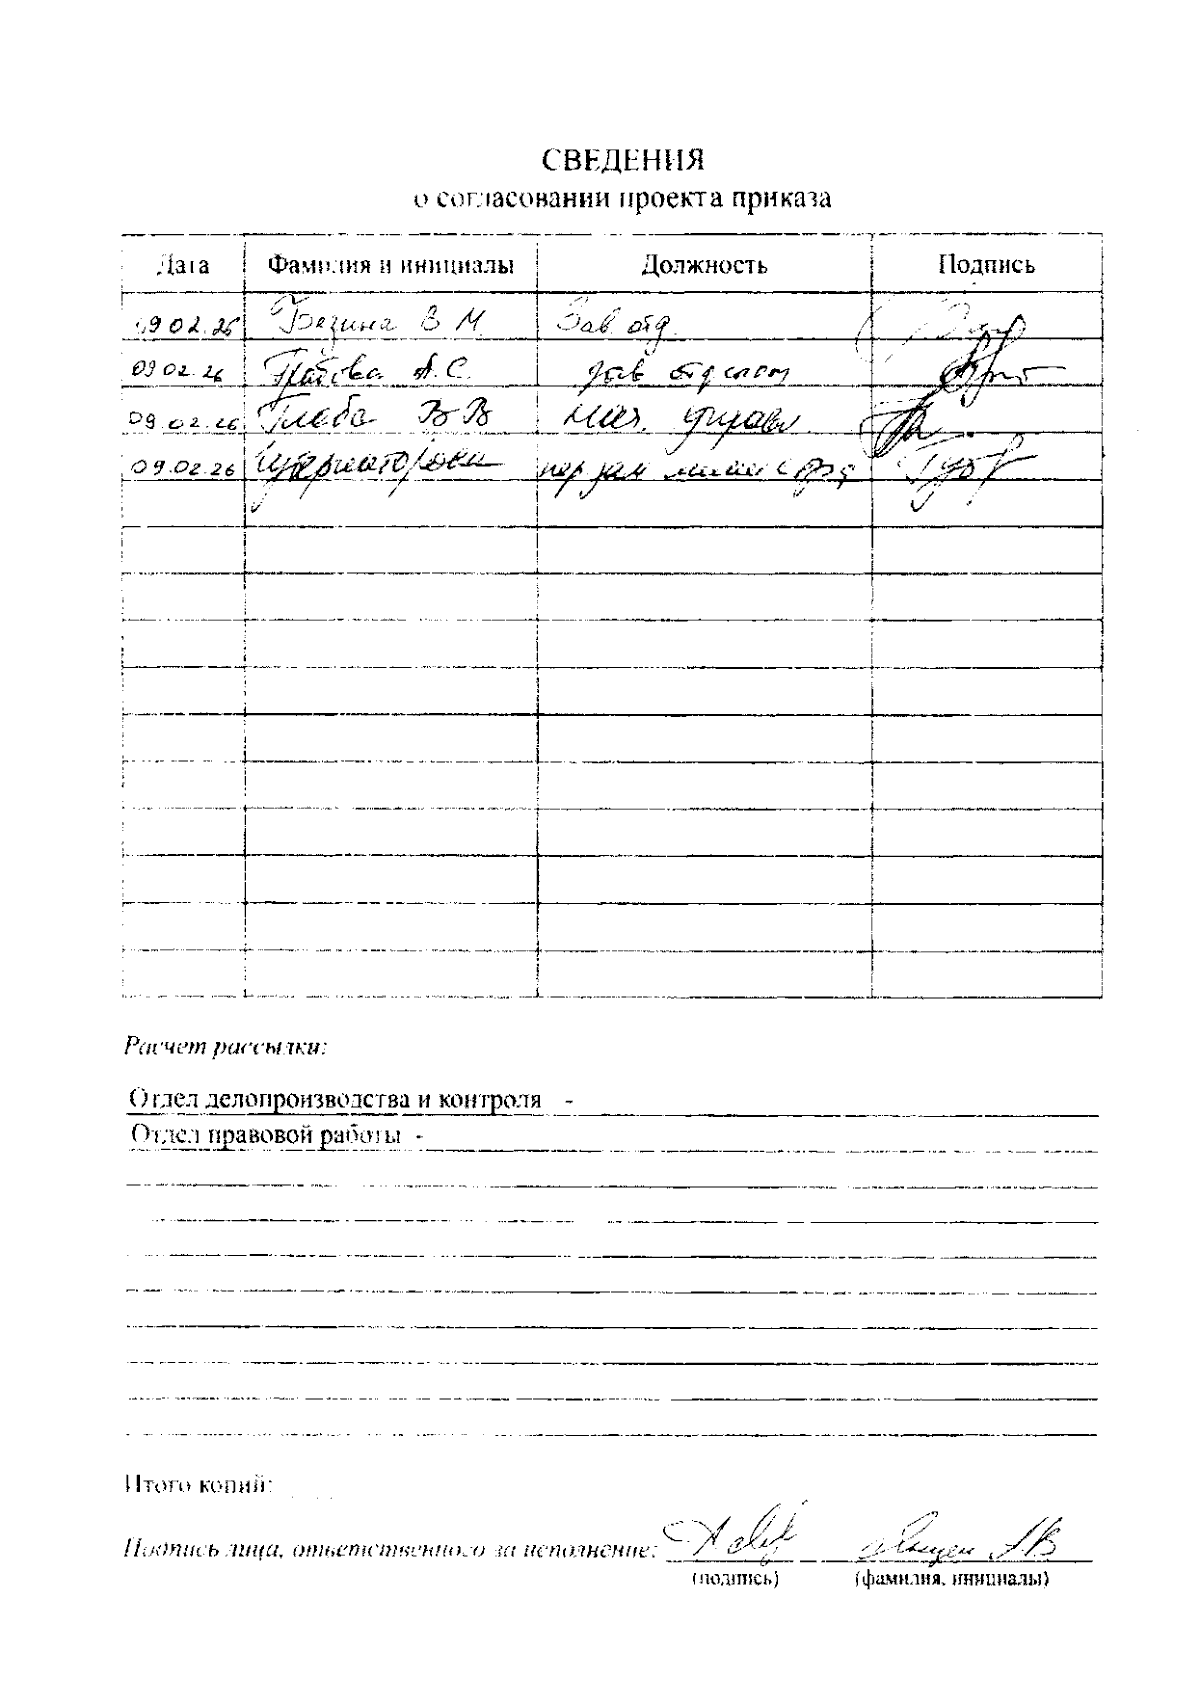 СВЕДЕНИЯ
о согласовании проекта приказа
Дата Фамилия и инициалы Должность Подпись
09.02.26 Безина В М Зав отд.
09.02.26 А.С. зав отделом
09.02.26 Глеба В В Нач. управл
09.02.26 пер зам министра
Расчет рассылки:
Отдел делопроизводства и контроля -
Отдел правовой работы -
Итого копий:
Подпись лица, ответственного за исполнение:
(подпись) (фамилия, инициалы)